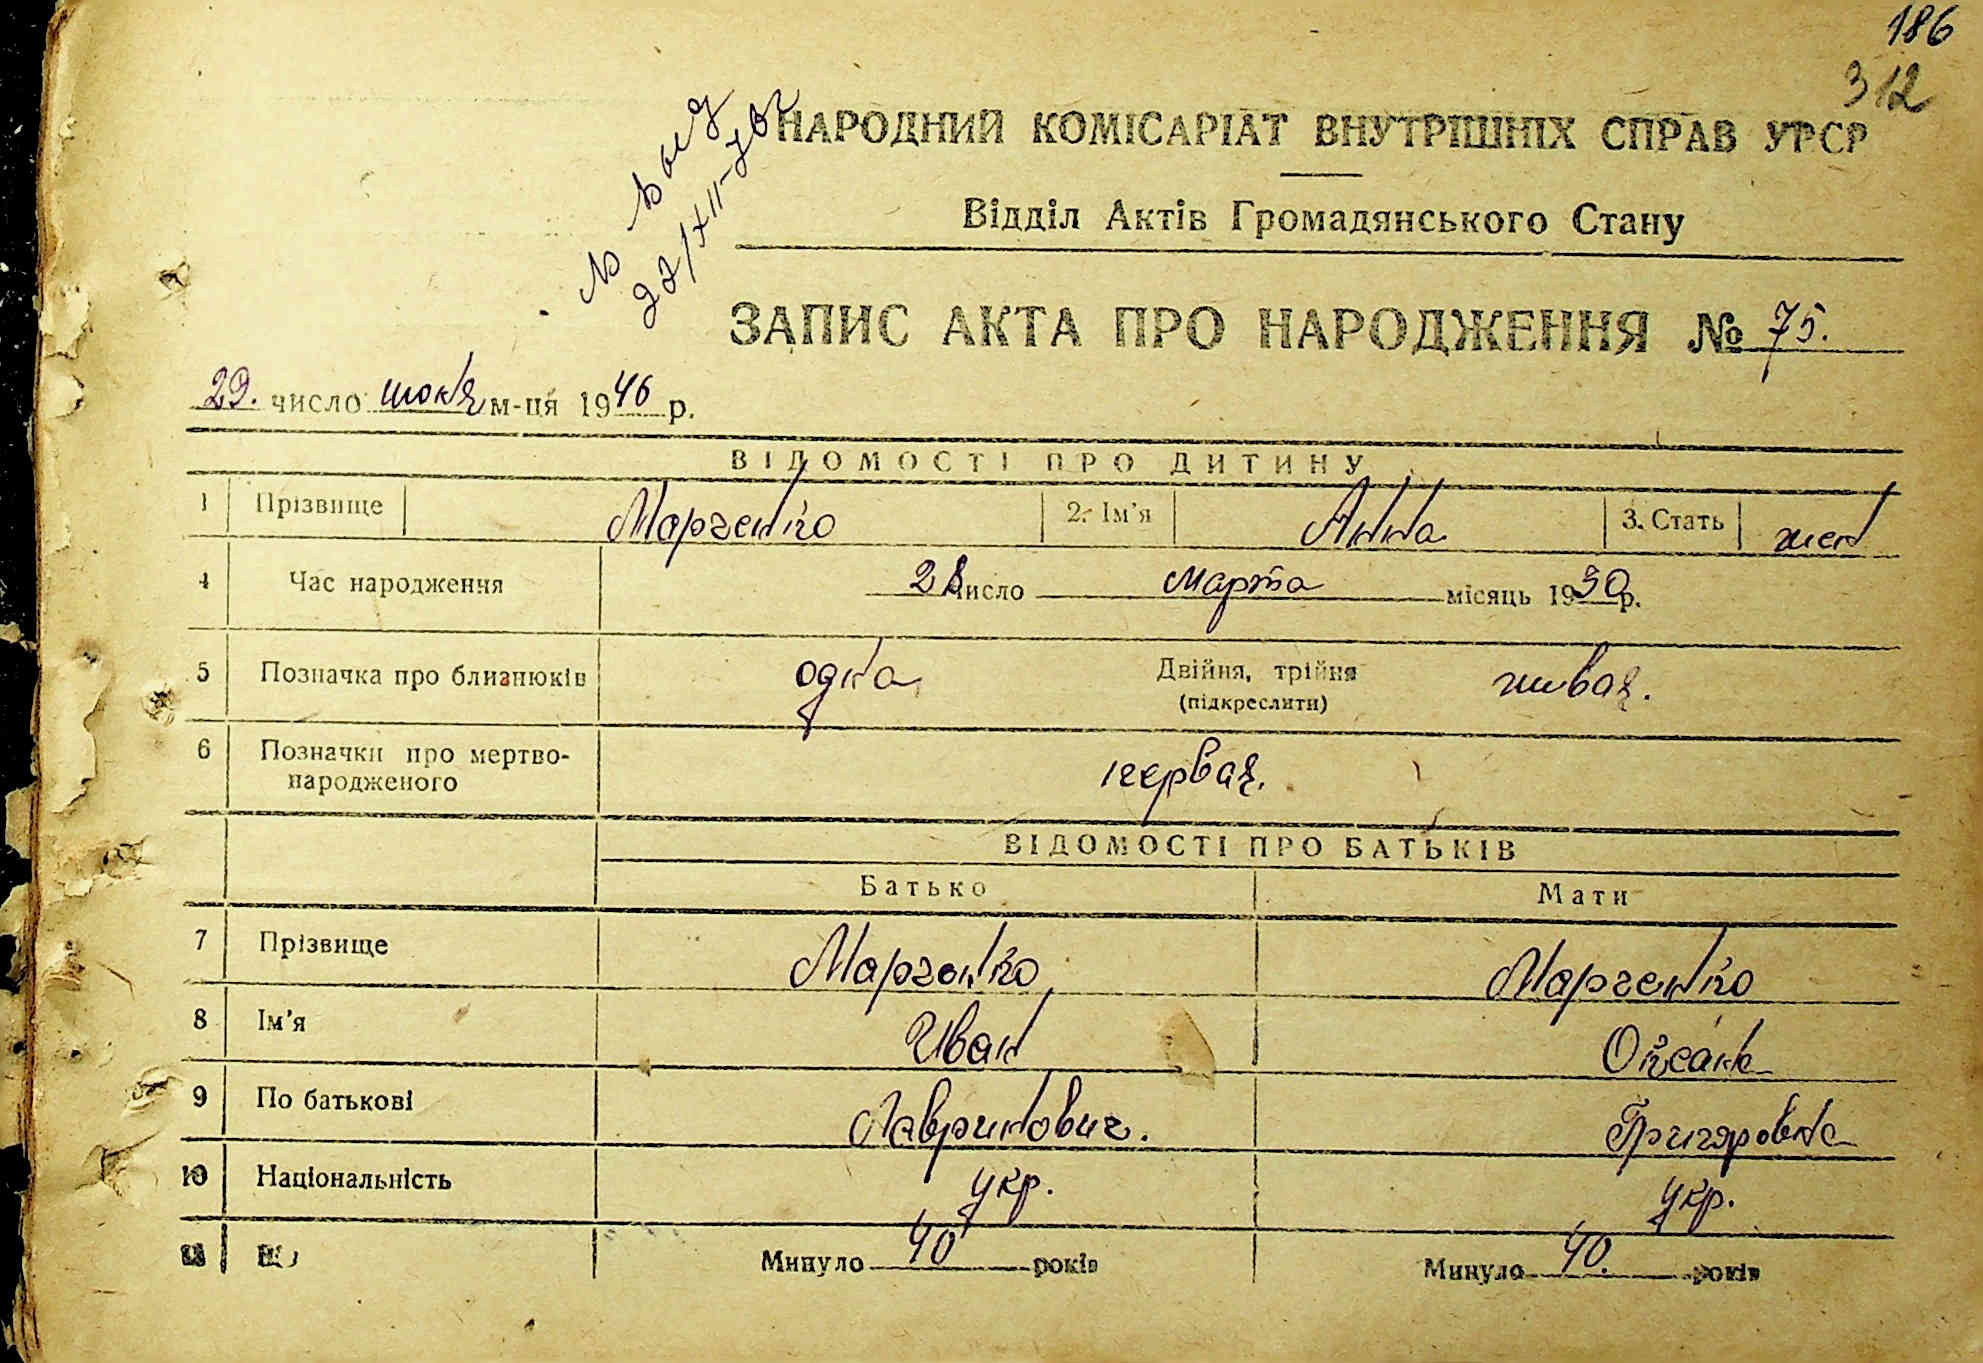 186
312
НАРОДНИЙ КОМІСАРІАТ ВНУТРІШНІХ СПРАВ УРСР
Відділ Актів Громадянського Стану
ЗАПИС АКТА ПРО НАРОДЖЕННЯ № 75.
29. число июня м-ця 1946 р.
ВІДОМОСТІ ПРО ДИТИНУ
1 Прізвище Марченко 2. Ім'я Анна 3. Стать жен
4 Час народження 28 число марта місяць 1930 р.
5 Позначка про близнюків одна Двійня, трійня живая.
(підкреслити)
6 Позначки про мертво-
народженого первая.
ВІДОМОСТІ ПРО БАТЬКІВ
Батько Мати
7 Прізвище Марченко Марченко
8 Ім'я Иван Оксана
9 По батькові Лавринович. Григоровна
10 Національність укр. укр.
Минуло 40 років Минуло 40. років